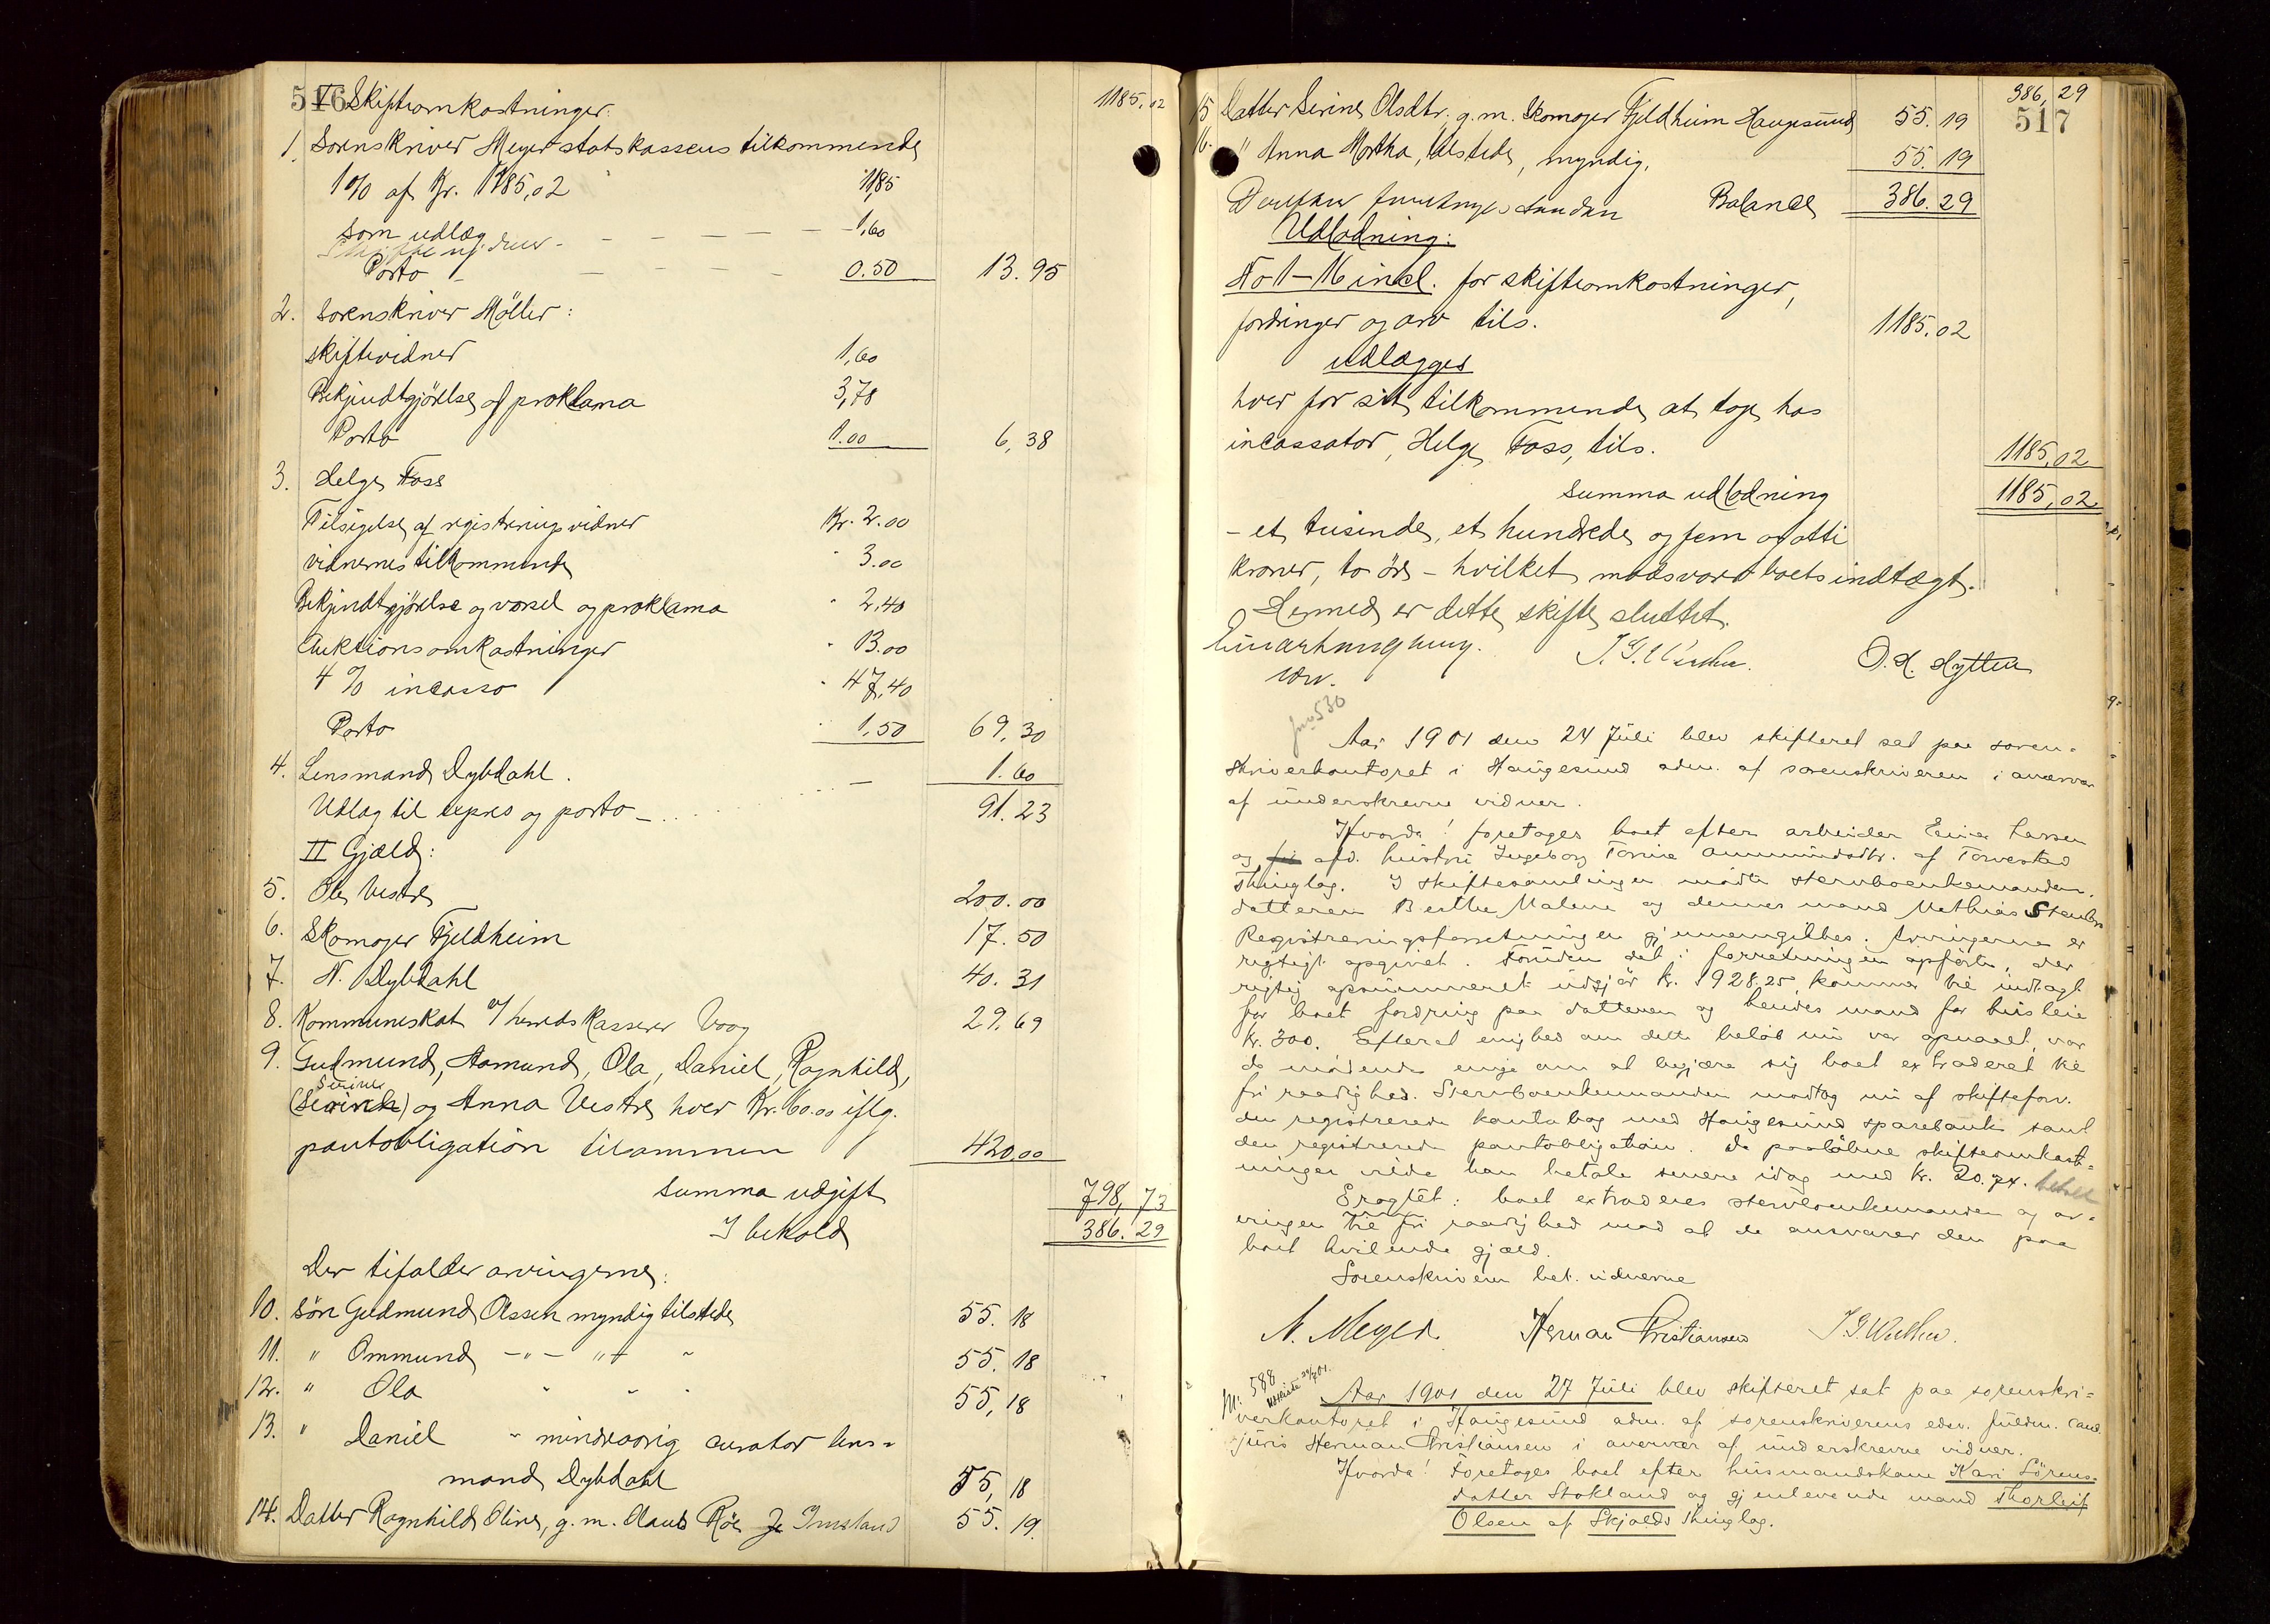 516
I Skifteomkostninger: 1185,02
1. Sorenskriver Meyer statskassens tilkommende
1% af Kr. 1185,02 11,85
som udlæg
1,60
Porto 0.50 13.95
2. Sorenskriver Möller:
skiftevidner 1,60
Bekjendtgjörelse af proklama 3,78
Porto 1.00 6,38
3. Helge Foss
Tilsigelse af registreringsvidner Kr. 2.00
vidnernes tilkommende " 3.00
Bekjendtgjörelse og varsel og proklama " 2,40
Auktionsomkostninger " 13.00
4 % incasso " 47,40
Porto " 1,50 69,30
4. Lensmand Dybdahl. 1.60
Udlæg til expres og porto 91.23
II Gjæld:
5. Ole Vestre 200.00
6. Skomager Fjeldheim 17.50
7. N. Dybdahl 40.31
8. Kommuneskat v/ herredskasserer Vaag 29,69
9. Gudmund, Aamund, Ola, Daniel, Ragnhild,
Serine
og Anna Vestre hver Kr. 60.00 iflg.
pantobligation tilsammen 420,00
Summa udgift 798,73
I behold 386.29
Der tilfalder arvingerne:
10. Sön Gudmund Olssen myndig tilstede 55.18
11. " Ommund -"- "+ " 55.18
12. " Ola " " " 55,18
13. " Daniel " mindreaarig curator lens-
mand Dybdahl 55,18
14. Datter Ragnhild Oline, g.m. Röe Imsland 55.19.
517
386,29
15 Datter Serine Olsdtr. g.m. Skomager Fjeldheim Haugesund 55.19
16. " Anna Martha, tilstede, myndig, 55.19
Balance 386.29
Udlodning:
No 1-16 incl. for skifteomkostninger,
fordringer og arv tils. 1185.02
udlægges
hver for sit tilkommende at tage hos
incassator, Helge Foss, tils. 1185,02
Summa udlodning 1185,02
- et tusinde, et hundrede og fem og otti
kroner, to öre - hvilket modsvarer boets indtægt.
Hermed er dette skifte sluttet.
O. H. Hytten
530
Aar 1901 den 24 Juli blev skifteret sat paa soren-
skriverkontoret i Haugesund adm. af sorenskriveren i overvær
af underskrevne vidner.
Hvorda! foretages boet efter arbeider Einar Larsen
og afd. hustru Ingeborg Tomine Ommundsdtr. af Torvestad
Thinglag. I skiftesamlingen mødte stervboenkemanden,
datteren Berthe Malene og dennes mand Mathias
Registreringsforretningen gjennemgikkes. Arvingerne er
rigtigt opgivet. Foruden det i forretningen opförte, der
rigtig opsummeret udgjör kr. 1928.25, kommer til indtægt
for boet fordring paa datteren og hendes mand for husleie
Kr. 300. Efterat enighed om dette beløb nu var opnaaet, var
de mödende enige om at begjære sig boet extraderet til
fri raadighed. Stervboenkemanden modtog nu af skifteforv.
den registrerede kontrabog med Haugesund sparebank samt
den registrerede pantobligation. De paaløbne skifteomkost-
ninger vilde han betale senere idag med kr. 20.74. betalt
Eragtet: boet extraderes stervboenkemanden og ar-
vingen til fri raadighed mod at de ansvarer den paa
boet hvilende gjæld.
Sorenskriveren bet. vidnerne
N. Meyer. Herman Christiansen
588
Aar 1901 den 27 Juli blev skifteret sat paa sorenskri-
verkontoret i Haugesund adm. af sorenskriverens edsv. fuldm. cand.
juris Herman Christiansen i overvær af underskrevne vidner.
Hvorda! Foretages boet efter husmandskone Kari Sörens-
datter Stokland og gjenlevende mand Thorleif
Olsen af Skjolds Thinglag.